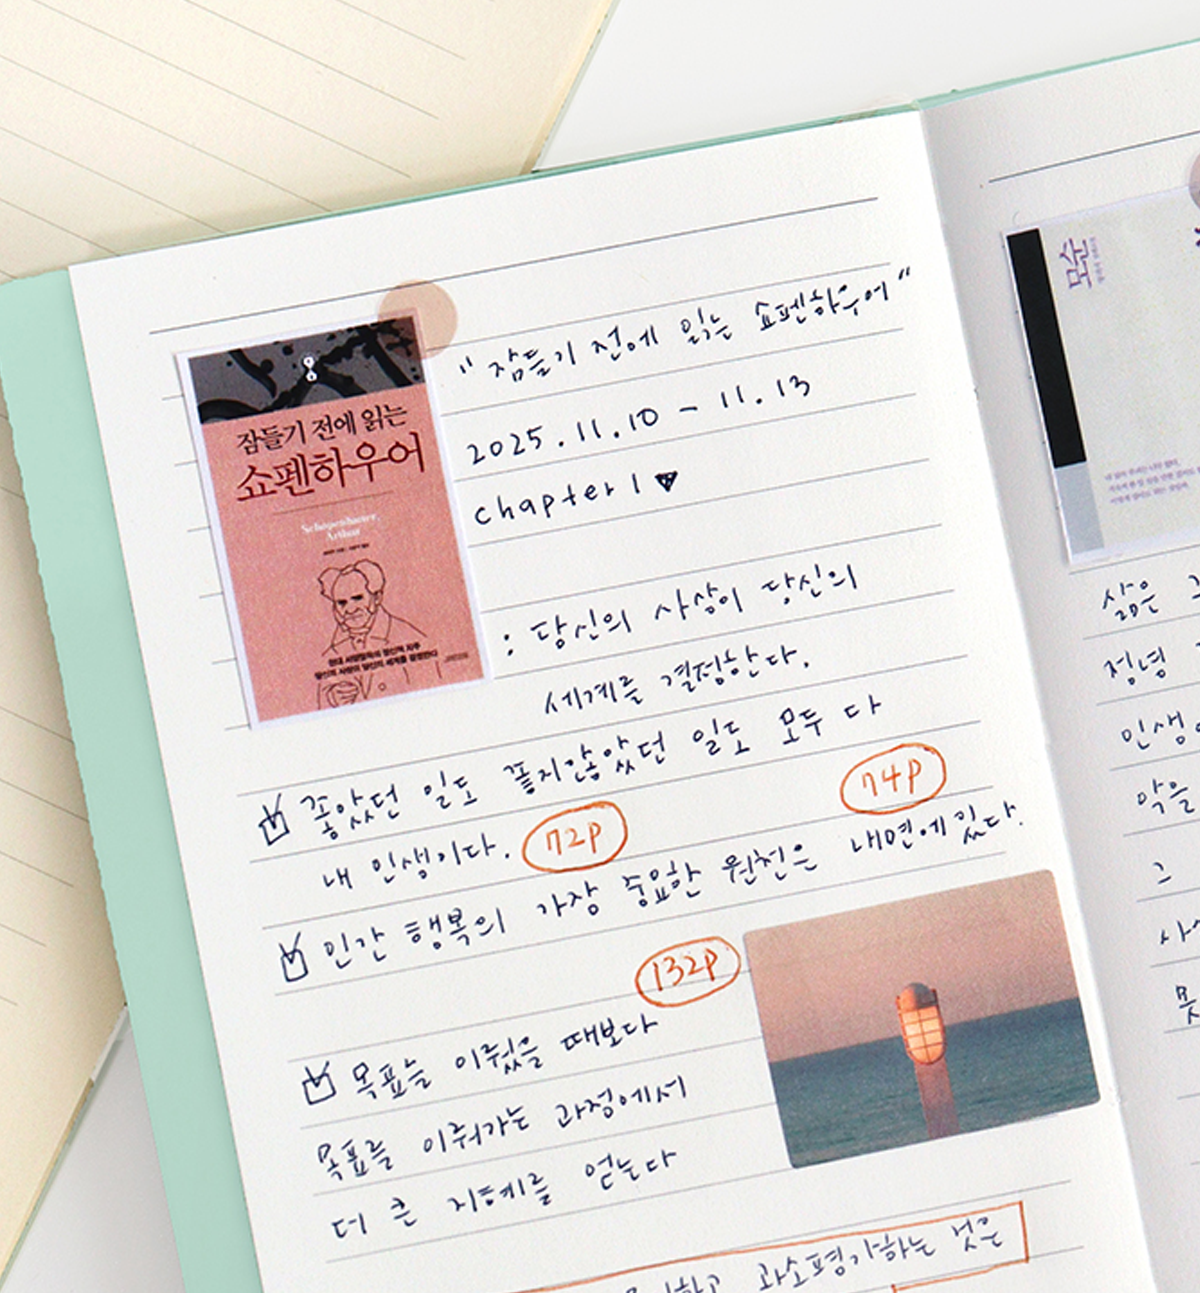 잠들기 전에 읽는
쇼펜하우어
Schopenhauer,
Arthur
당신의 사상이 당신의 세계를 결정한다
"잠들기 전에 읽는 쇼펜하우어"
2025.11.10 - 11.13
chapter 1
: 당신의 사상이 당신의
세계를 결정한다.
좋았던 일도 좋지않았던 일도 모두 다
내 인생이다. 72P
74P
인간 행복의 가장 중요한 원천은 내면에 있다.
132P
목표를 이뤘을 때보다
목표를 이뤄가는 과정에서
더 큰 지혜를 얻는다
과소평가하는 것은
모순
삶은 그
정녕
인생
악을
그